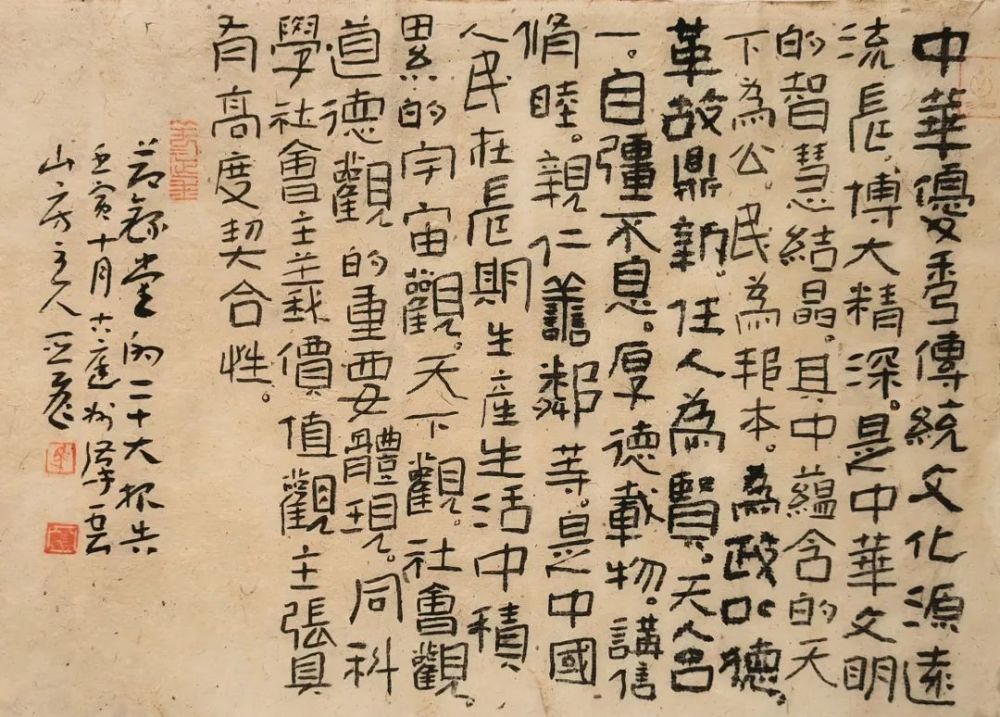 中華優秀傳統文化源遠
流長。博大精深。是中華文明
的智慧結晶。其中蘊含的天
下為公。民為邦本。為政以德。
革故鼎新。任人為賢。天人合
一。自彊不息。厚德載物。講信
脩睦。親仁善鄰等。是中國
人民在長期生產生活中積
累的宇宙觀。天下觀。社會觀。
道德觀的重要體現。同科
學社會主義價值觀主張具
有高度契合性。
节録党的二十大报告
壬寅十月六廬州
山房主人